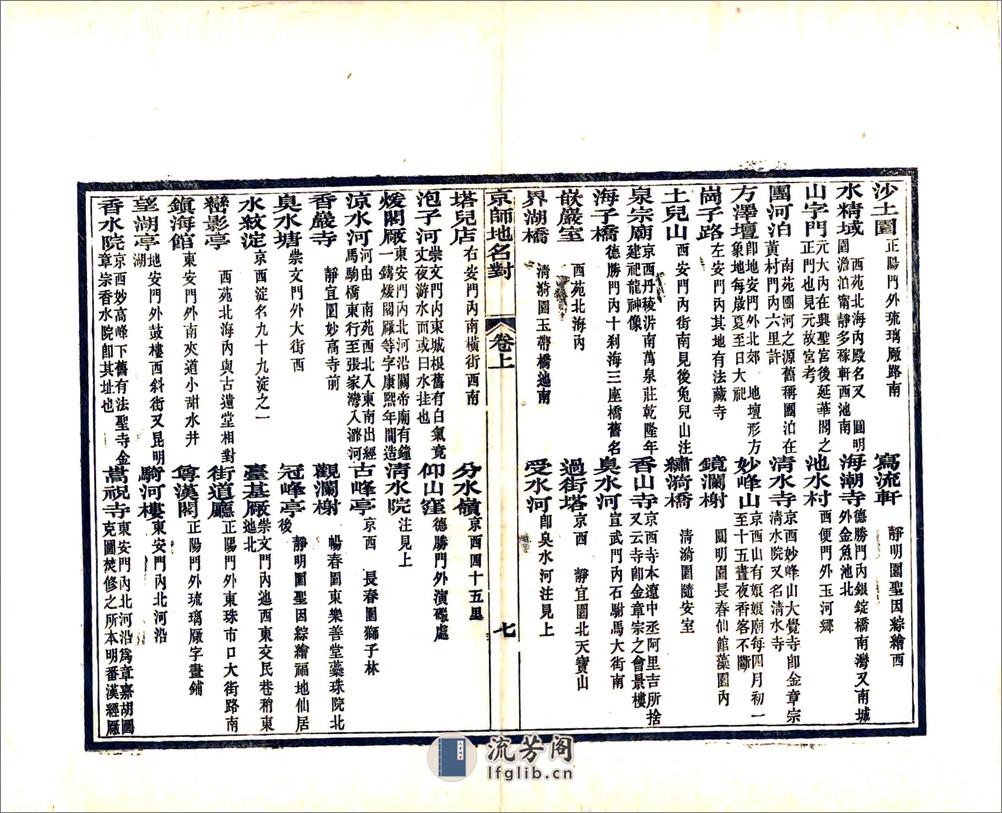 沙土園 正陽門外琉璃厰路南 寫流軒 靜明園聖因綜繪西
水精域 西苑北海內殿名又 圓明園澹泊甯靜多稼軒西池南 海潮寺 德勝門內銀錠橋南灣又南城外金魚池北
山字門 元大內在興聖宮後延華閣之正門也見元故宮考 池水村 西便門外玉河鄉
團河泊 南苑團河之源舊稱團泊在黃村門內六里許 清水寺 京西妙峰山大覺寺卽金章宗清水院又名清水寺
方澤壇 卽地安門外北郊 地壇形方象地每歲夏至日大祀 妙峰山 京西山有娘娘廟每四月初一至十五晝夜香客不斷
崗子路 左安門內其地有法藏寺 鏡瀾榭 圓明園長春仙館藻園內
土兒山 西安門內街南見後兔兒山注 繡漪橋 清漪園隨安室
泉宗廟 京西丹稜沜南萬泉莊乾隆年建祀龍神像 香山寺 京西寺本遼中丞阿里吉所捨又云寺卽金章宗之會景樓
海子橋 德勝門內十刹海三座橋舊名 臭水河 宣武門內石駙馬大街南
嵌巖室 西苑北海內 過街塔 京西 靜宜園北天寶山
界湖橋 清漪園玉帶橋迤南 受水河 卽臭水河注見上
京師地名對 卷上 七
塔兒店 右安門內南橫街西南 分水嶺 京西四十五里
泡子河 崇文門內東城根舊有白氣竟丈夜游水而或曰水挂也 仰山窪 德勝門外演礮處
煖閣厰 東安門內北河沿關帝廟有鐘一鑄煖閣厰等字康熙年間造 清水院 注見上
涼水河 河由 南苑西北入東南出經馬駒橋東行至張家灣入潞河 古峰亭 京西 長春園獅子林
香巖寺 靜宜園妙高寺前 觀瀾榭 暢春園東樂善堂蘂珠院北
臭水塘 崇文門外大街西 冠峰亭 靜明園聖因綜繪福地仙居後
水紋淀 京西淀名九十九淀之一 臺基厰 崇文門內迤西東交民巷稍東迤北
巒影亭 西苑北海內與古遺堂相對 街道廳 正陽門外東珠市口大街路南
鎮海館 東安門外南夾道小甜水井 尊漢閣 正陽門外琉璃厰字畫鋪
望湖亭 地安門外鼓樓西斜街又昆明湖 騎河樓 東安門內北河沿
香水院 京西妙高峰下舊有法聖寺金章宗香水院卽其址也 嵩祝寺 東安門內北河沿爲章嘉胡圖克圖焚修之所本明番漢經厰
流芳阁
lfglib.cn